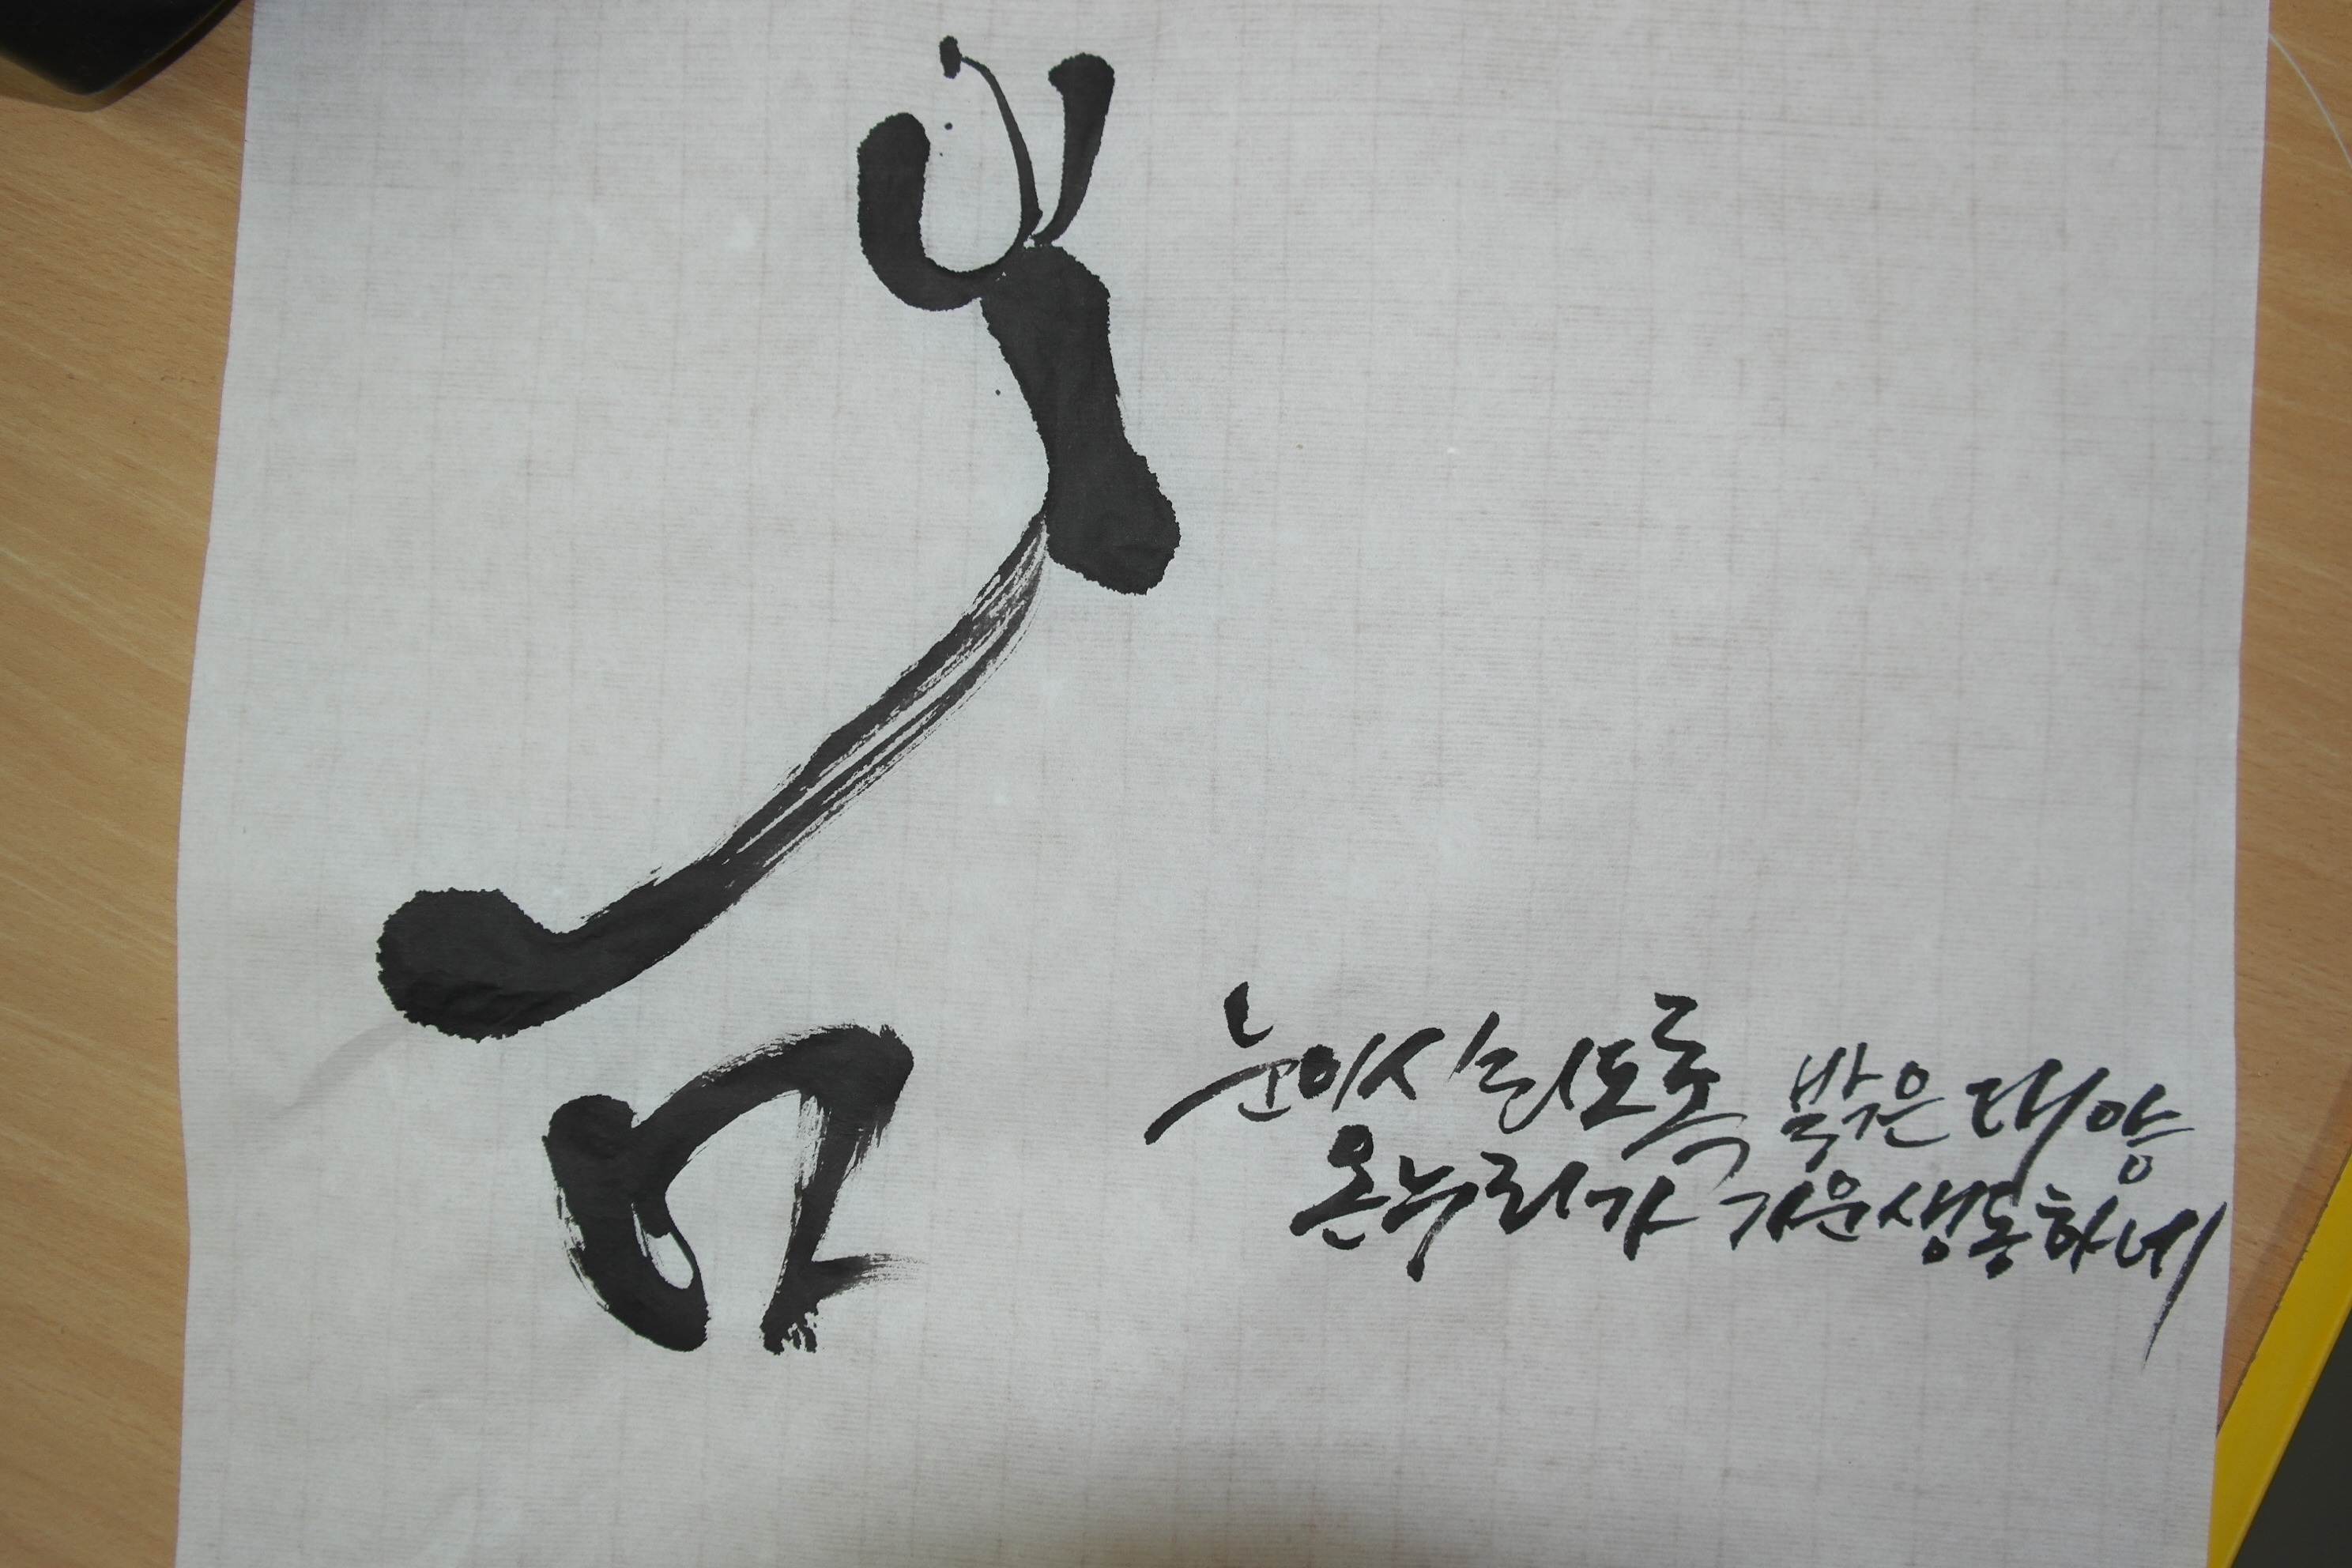 봄
눈이시리도록 밝은 태양
온누리가 기운생동하네